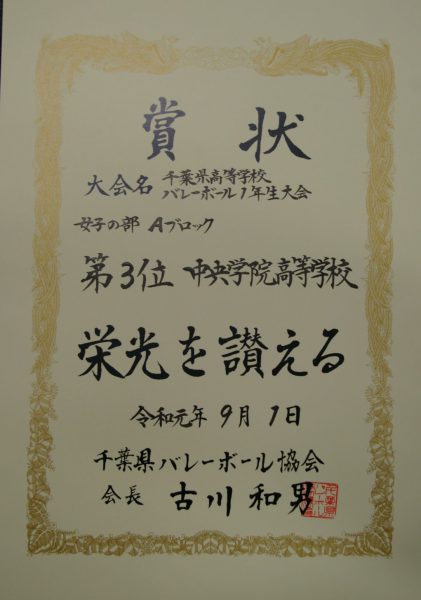 賞状
大会名 千葉県高等学校
バレーボール1年生大会
女子の部 Aブロック
第3位 中央学院高等学校
栄光を讃える
令和元年 9月 1日
千葉県バレーボール協会
会長 古川和男